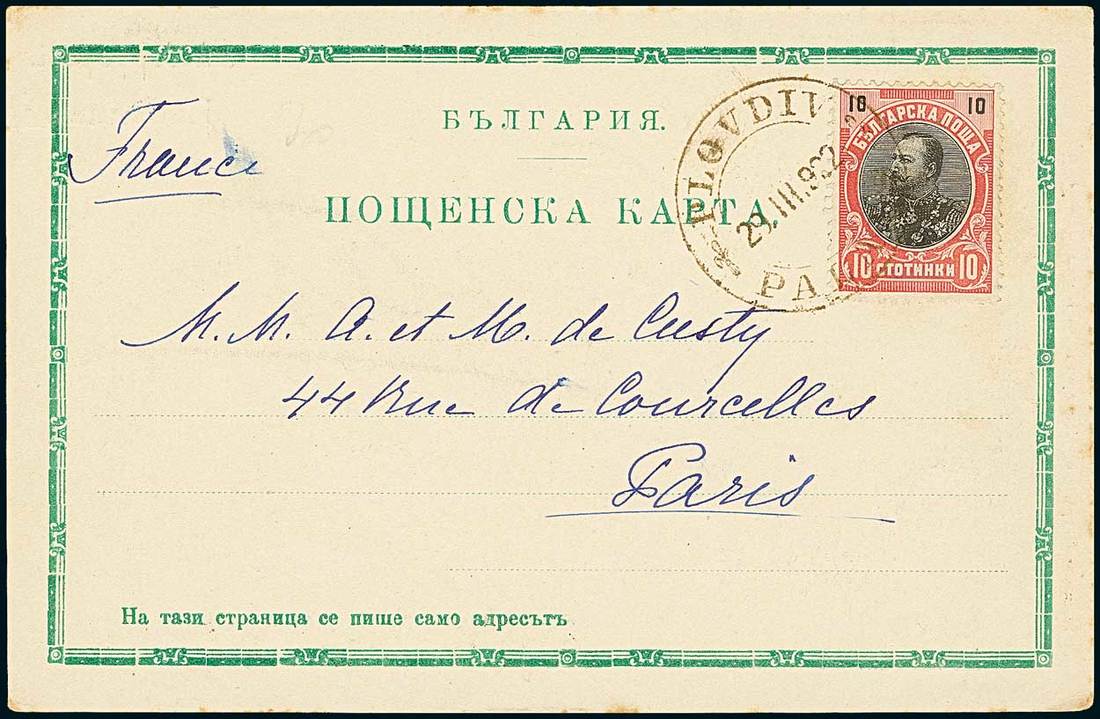 БЪЛГАРИЯ.
France
ПОЩЕНСКА КАРТА
PLOVDIV
29.III.902
10 10
БЪЛГАРСКА ПОЩА
10 СТОТИНКИ 10
M. M. A. et M. de Custy
44 Rue de Courcelles
Paris
На тази страница се пише само адресътъ